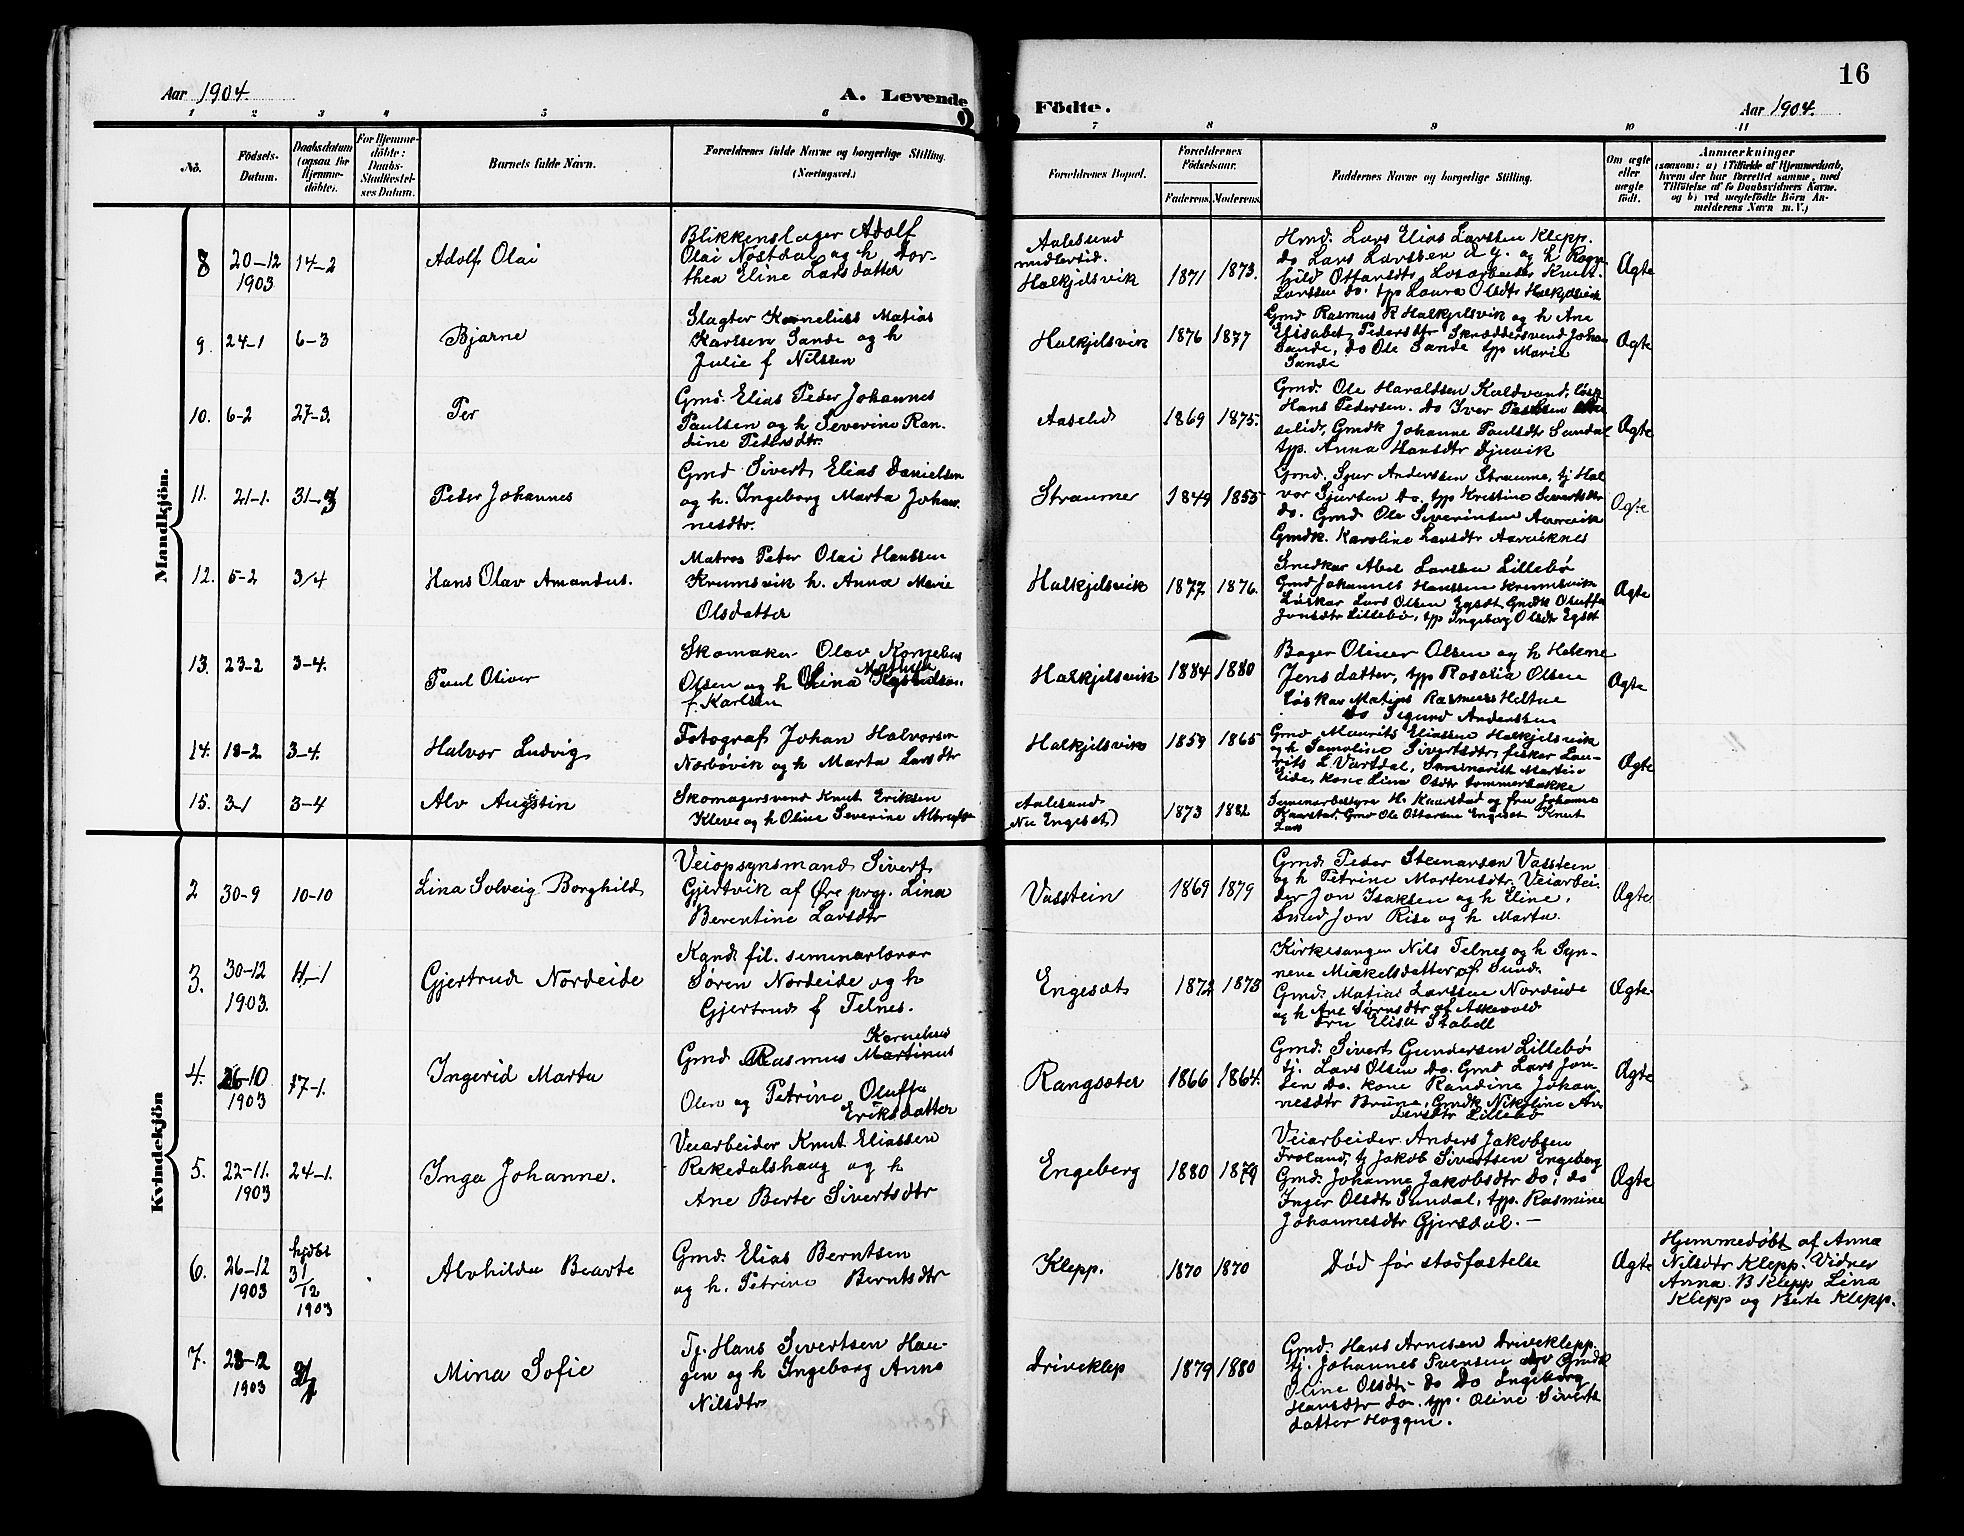 Aar 1904.
A. Levende Födte.
Aar 1904.
16
1 2 3 4 5 6 7 8 9 10 11
No.
Födsels-
Datum.
Daabsdatum
(ogsaa for
Hjemme-
döbte).
For Hjemme-
döbte:
Daabs-
Stadfæstel-
ses Datum.
Barnets fulde Navn.
Forældrenes fulde Navne og borgerlige Stilling.
(Næringsvei.)
Forældrenes Bopæl.
Forældrenes
Födselsaar.
Faderens. Moderens.
Faddernes Navne og borgerlige Stilling.
Om ægte
eller
uægte
født.
Anmærkninger
(saasom: a) i Tilfælde af Hjemmedaab,
hvem der har forrettet samme, med
Tilföielse af to Daabsvidners Navne.
og b) ved uægtefödte Börn An-
melderens Navn m. V.)
Mandkjön.
8 20-12 1903 14-2
Adolf Olai
Blikkenslager Adolf
Olai Nostdal og h Dor-
thea Eline Larsdatter
Aalesund
midlertid.
Halkjelsvik
1871 1873.
Hmd. Lars Elias Larssen Klepp.
do Lars Larssen d. y. og h Ragn-
hild Ottarsdtr Losarbeider Knut
Larssen do. tpp Laura Olsdtr Halkjelsvik
Ægte
9. 24-1 6-3
Bjarne
Slagter Kornelius Matias
Karlsen Sande og h
Julie f Nilssen
Halkjelsvik
1876 1877
Gmd Rasmus R Halkjelsvik og h Ane
Elisabet Pedersdtr Skræddersvend Johan
Sande, do Ole Sande tpp Marie
Sande
Ægte
10. 6-2 27-3.
Per
Gmd. Elias Peder Johannes
Paulsen og h Severine Ran-
dine Pedersdtr.
Aaselid
1869 1875.
Gmd. Ole Haraldsen Kaldvand, løsk
Hans Pedersen. do Iver Paulsen Aa-
selid, Gmdk Johanne Paulsdtr Sundal
tpp. Anna Hansdtr Djuvik
Ægte
11. 21-1. 31-3
Peder Johannes
Gmd Sivert Elias Danielsen
og h. Ingeborg Marta Johan-
nesdtr.
Straumer
1849 1855
Gmd. Sjur Anderssen Straume, tj Hal
vor Sjursen do. tpp Kristine Sivertsdtr
do. Gmd Ole Siverinsen Aarvik
Gmdk. Karoline Larsdtr Aarviknes
Ægte
12. 5-2 3/4
Hans Olav Amandus.
Matros Peter Olai Hanssen
Krumsvik h. Anna Marie
Olsdatter
Halkjelsvik
1877 1876.
Snedkar Abel Larsen Lillebö
Gmd Johannes Hanssen Krumsvik
Løskar Lars Olsen Egset Gmdk Oluffa
Jonsdtr Lillebö, tpp Ingeborg Olsdtr Egset
Ægte
13. 23-2 3-4.
Paul Oliver
Skomaker Olav Kornelius
Olsen og h Olina Matilde
f. Karlsen
Halkjelsvik
1884 1880
Bager Oliner Olsen og h Helene
Jensdatter, tpp Rosalia Olsen
Løskar Matias Rasmus Heltne
do Sigurd Anderssen
Ægte
14. 18-2 3-4.
Halvor Ludvig
Fotograf Johan Halvorsen
Nærbövik og h Marta Larsdtr
Halkjelsvik
1859 1865
Gmd Maurits Eliassen Halkjelsvik
og h Samoline Sivertsdtr, fiskar Lau-
rits L. Vartdal, Seminarist Martin
Eide, kone Lina Olsdtr Lommerbakke
Ægte
15. 3-1 3-4
Alv Augustin
Skomagersvend Knut Eriksen
Kleve og h Oline Severine Albregtsen
Aalesund
(Nu Engeset)
1873 1882
Seminarbestyrer H. Kaarstad og fru Johanna
Kaarstad, Gmd Ole Ottarsen Engeset Knut
Lars
Kvindekjön
2 30-9 10-10
Lina Solveig Borghild
Veiopsynsmand Sivert
Gjertvik af Øre prgj. Lina
Berentine Larsdtr
Vasstein
1869 1879
Gmd. Peder Steinarsen Vasstein
og h Petrine Martensdtr. Veiarbei-
der Jon Isaksen og h Eline,
Smed Jon Rise og h Marta.
Ægte
3. 30-12 1903. 11-1
Gjertrud Nordeide
Kand. fil. seminarlærar
Søren Nordeide og h
Gjertrud f Telnes.
Engeset
1872 1873
Kirkesanger Nils Telnes og h Syn-
neve Mikkelsdatter af Sund.
Gmd. Matias Larssen Nordeide
og h Ane Sørnsdtr af Askevold
Fru Elise Stabell
Ægte
4. 26-10 1903 17-1.
Ingerid Marta
Gmd Rasmus Kornelius Martinus
Olen og Petrine Oluffa
Eriksdatter
Rangsæter
1866 1864.
Gmd. Sivert Gundersen Lillebö
tj. Lars Olsen do. Gmd Lars Jon-
sen do. kone Randine Johan-
nesdtr Brune, Gmdk Nikoline An-
dersdtr Lillebö
Ægte
5. 22-11. 1903 24-1.
Inga Johanne.
Veiarbeider Knut Eliassen
Rekedalshaug og h
Ane Berte Sivertsdtr
Engeberg
1880 1879
Veiarbeider Anders Jakobsen
Froland, tj Jakob Sivertsen Engeberg
Gmd. Johanne Jakobsdtr do, do
Inger Olsdtr Sundal, tpp. Rasmine
Johannesdtr Gjersdal. —
Ægte
6. 26-12 1903 hjdbt 31/12 1903
Alvhilda Bearte
Gmd. Elias Berntsen
og h. Petrine Berntsdtr
Klepp.
1870 1870
Död för stadfæstelse
Ægte
Hjemmedøbt af Anna
Nilsdtr Klepp. Vidner
Anna B Klepp Lina
Klepp og Berte Klepp.
7. 28-12 1903
Mina Sofie
Tj. Hans Sivertsen Hau-
gen og h Ingeborg Anna
Nilsdtr
Driveklep
1879 1880
Gmd. Hans Arnesen Driveklepp.
tj. Johannes Ivensen do Gmdk
Oline Olsdtr do Do Ingeborg
Hansdtr do. tpp. Oline Siverts
datter Haggen.